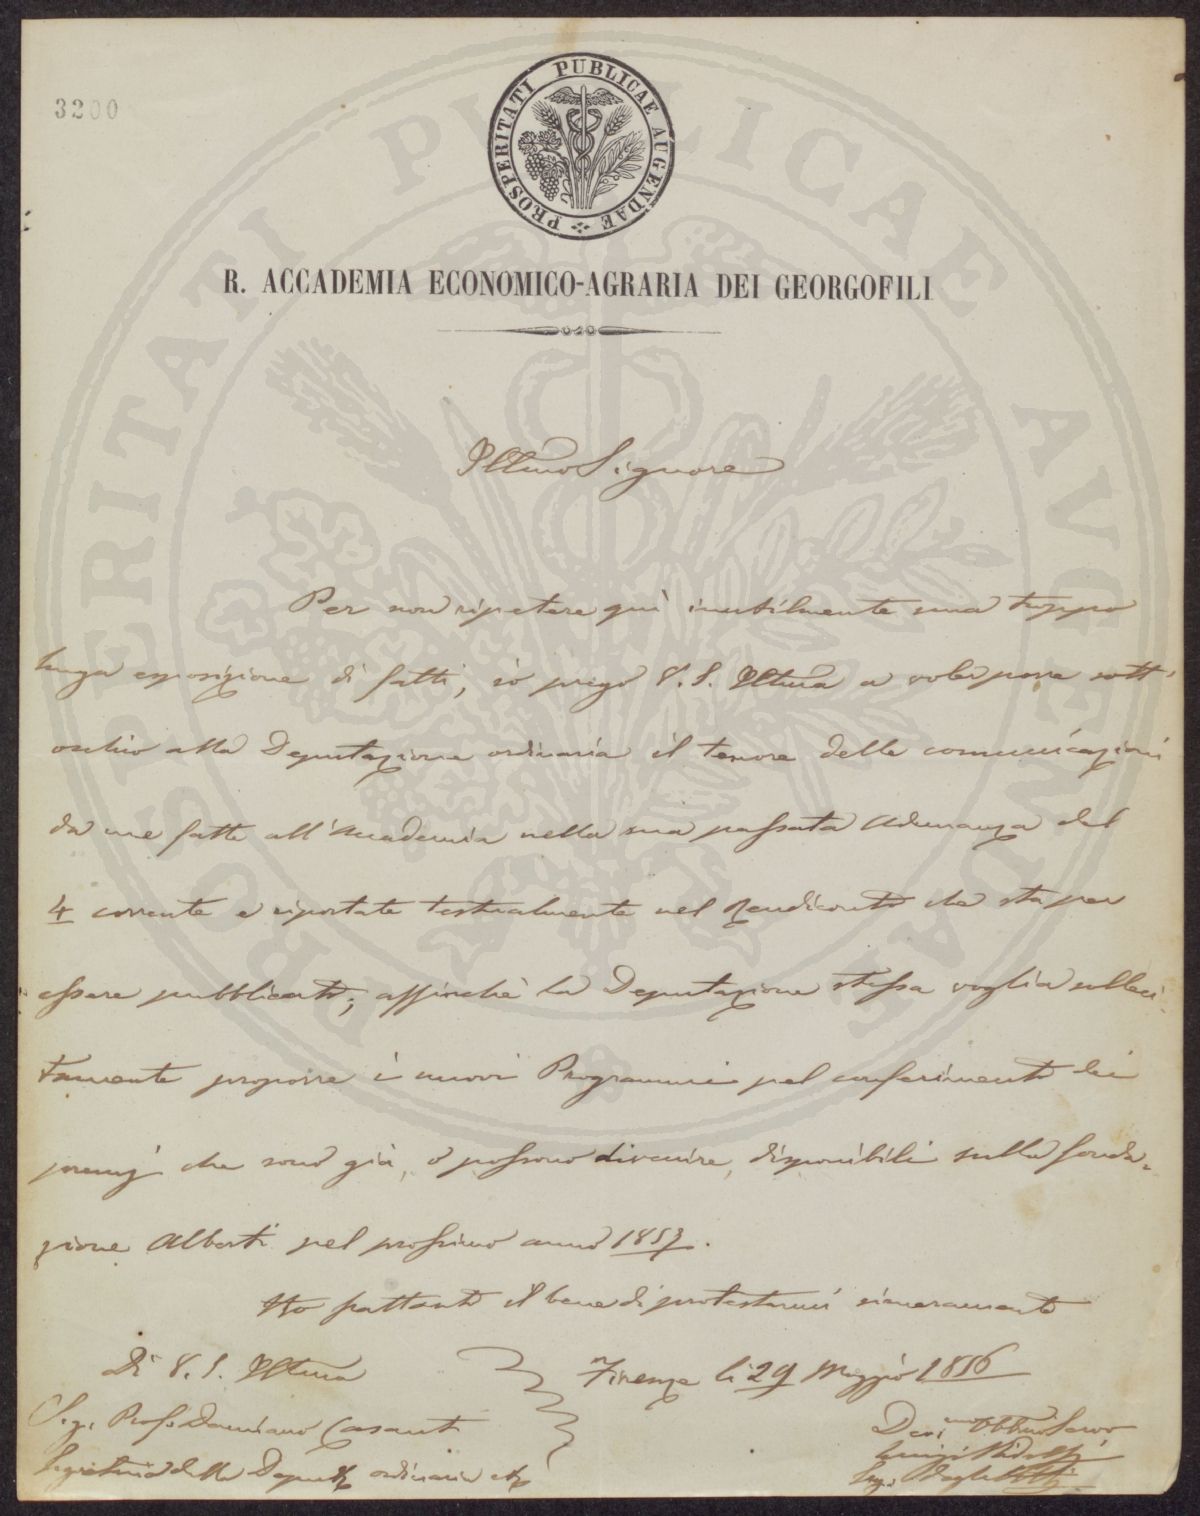 3200
PROSPERITATI PUBLICAE AUGENDAE
R. ACCADEMIA ECONOMICO-AGRARIA DEI GEORGOFILI
Illmo Signore
Per non ripetere quì inutilmente una troppo
lunga esposizione di fatti, io prego V. S. Illma a voler porre sott'
occhio alla Deputazione ordinaria il tenore delle comunicazioni
da me fatte all'Accademia nella sua passata Adunanza del
4 corrente e riportate testualmente nel Rendiconto che sta per
essere pubblicato; affinchè la Deputazione stessa voglia solleci
tamente proporre i nuovi Programmi pel conferimento dei
premj che sono già, o possono divenire, disponibili sulla fonda=
zione Alberti pel prossimo anno 1857.
Ho frattanto il bene di protestarmi sinceramente
Di V. S. Illma
Firenze li 29 Maggio 1856
Sig. Prof. Damiano Casanti
Segretario della Deputaz. ordinaria
Devmo Obbmo Servo
Luigi Ridolfi
Seg. degli Atti
PROSPERITATI PUBLICAE AUGENDAE